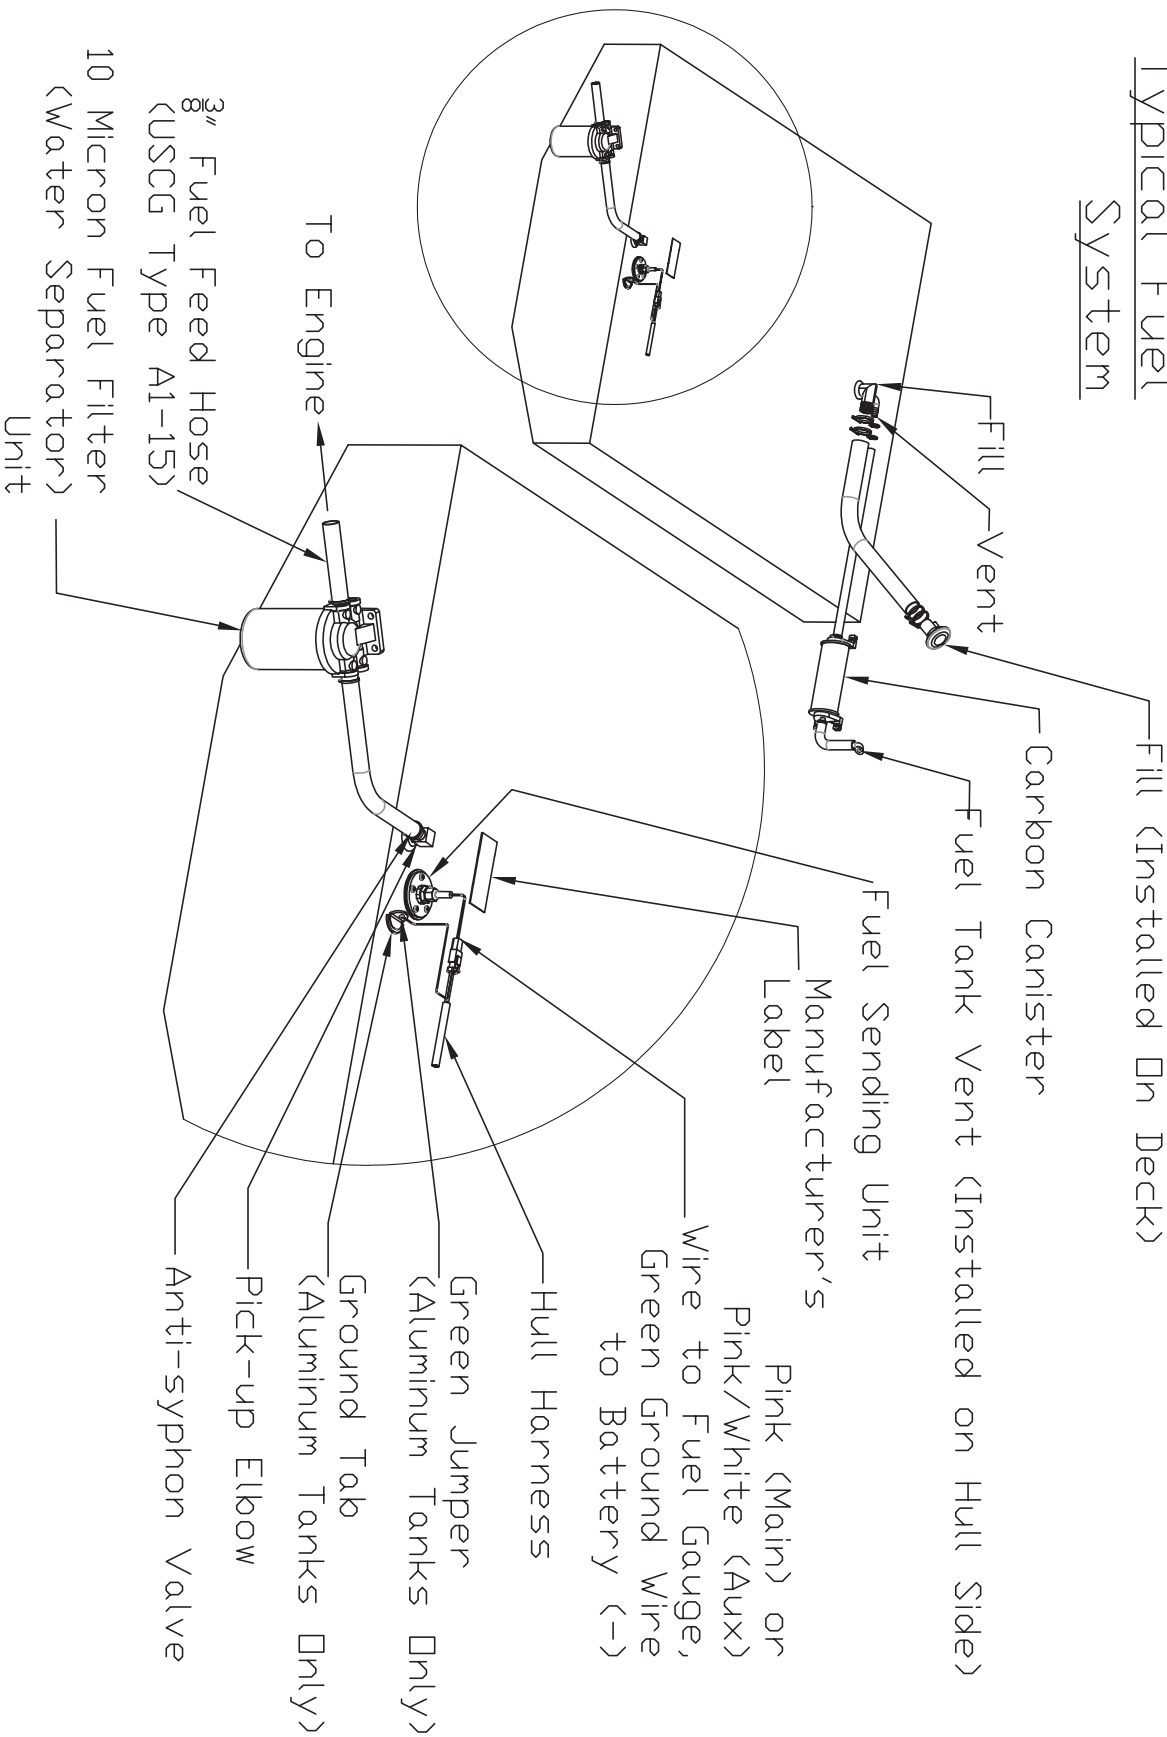 Typical Fuel
System
Fill
Vent
Fill (Installed On Deck)
Carbon Canister
Fuel Tank Vent (Installed on Hull Side)
Fuel Sending Unit
Manufacturer's
Label
Pink (Main) or
Pink/White (Aux)
Wire to Fuel Gauge,
Green Ground Wire
to Battery (-)
Hull Harness
Green Jumper
(Aluminum Tanks Only)
Ground Tab
(Aluminum Tanks Only)
Pick-up Elbow
Anti-syphon Valve
To Engine
3/8" Fuel Feed Hose
(USCG Type A1-15)
10 Micron Fuel Filter
(Water Separator)
Unit